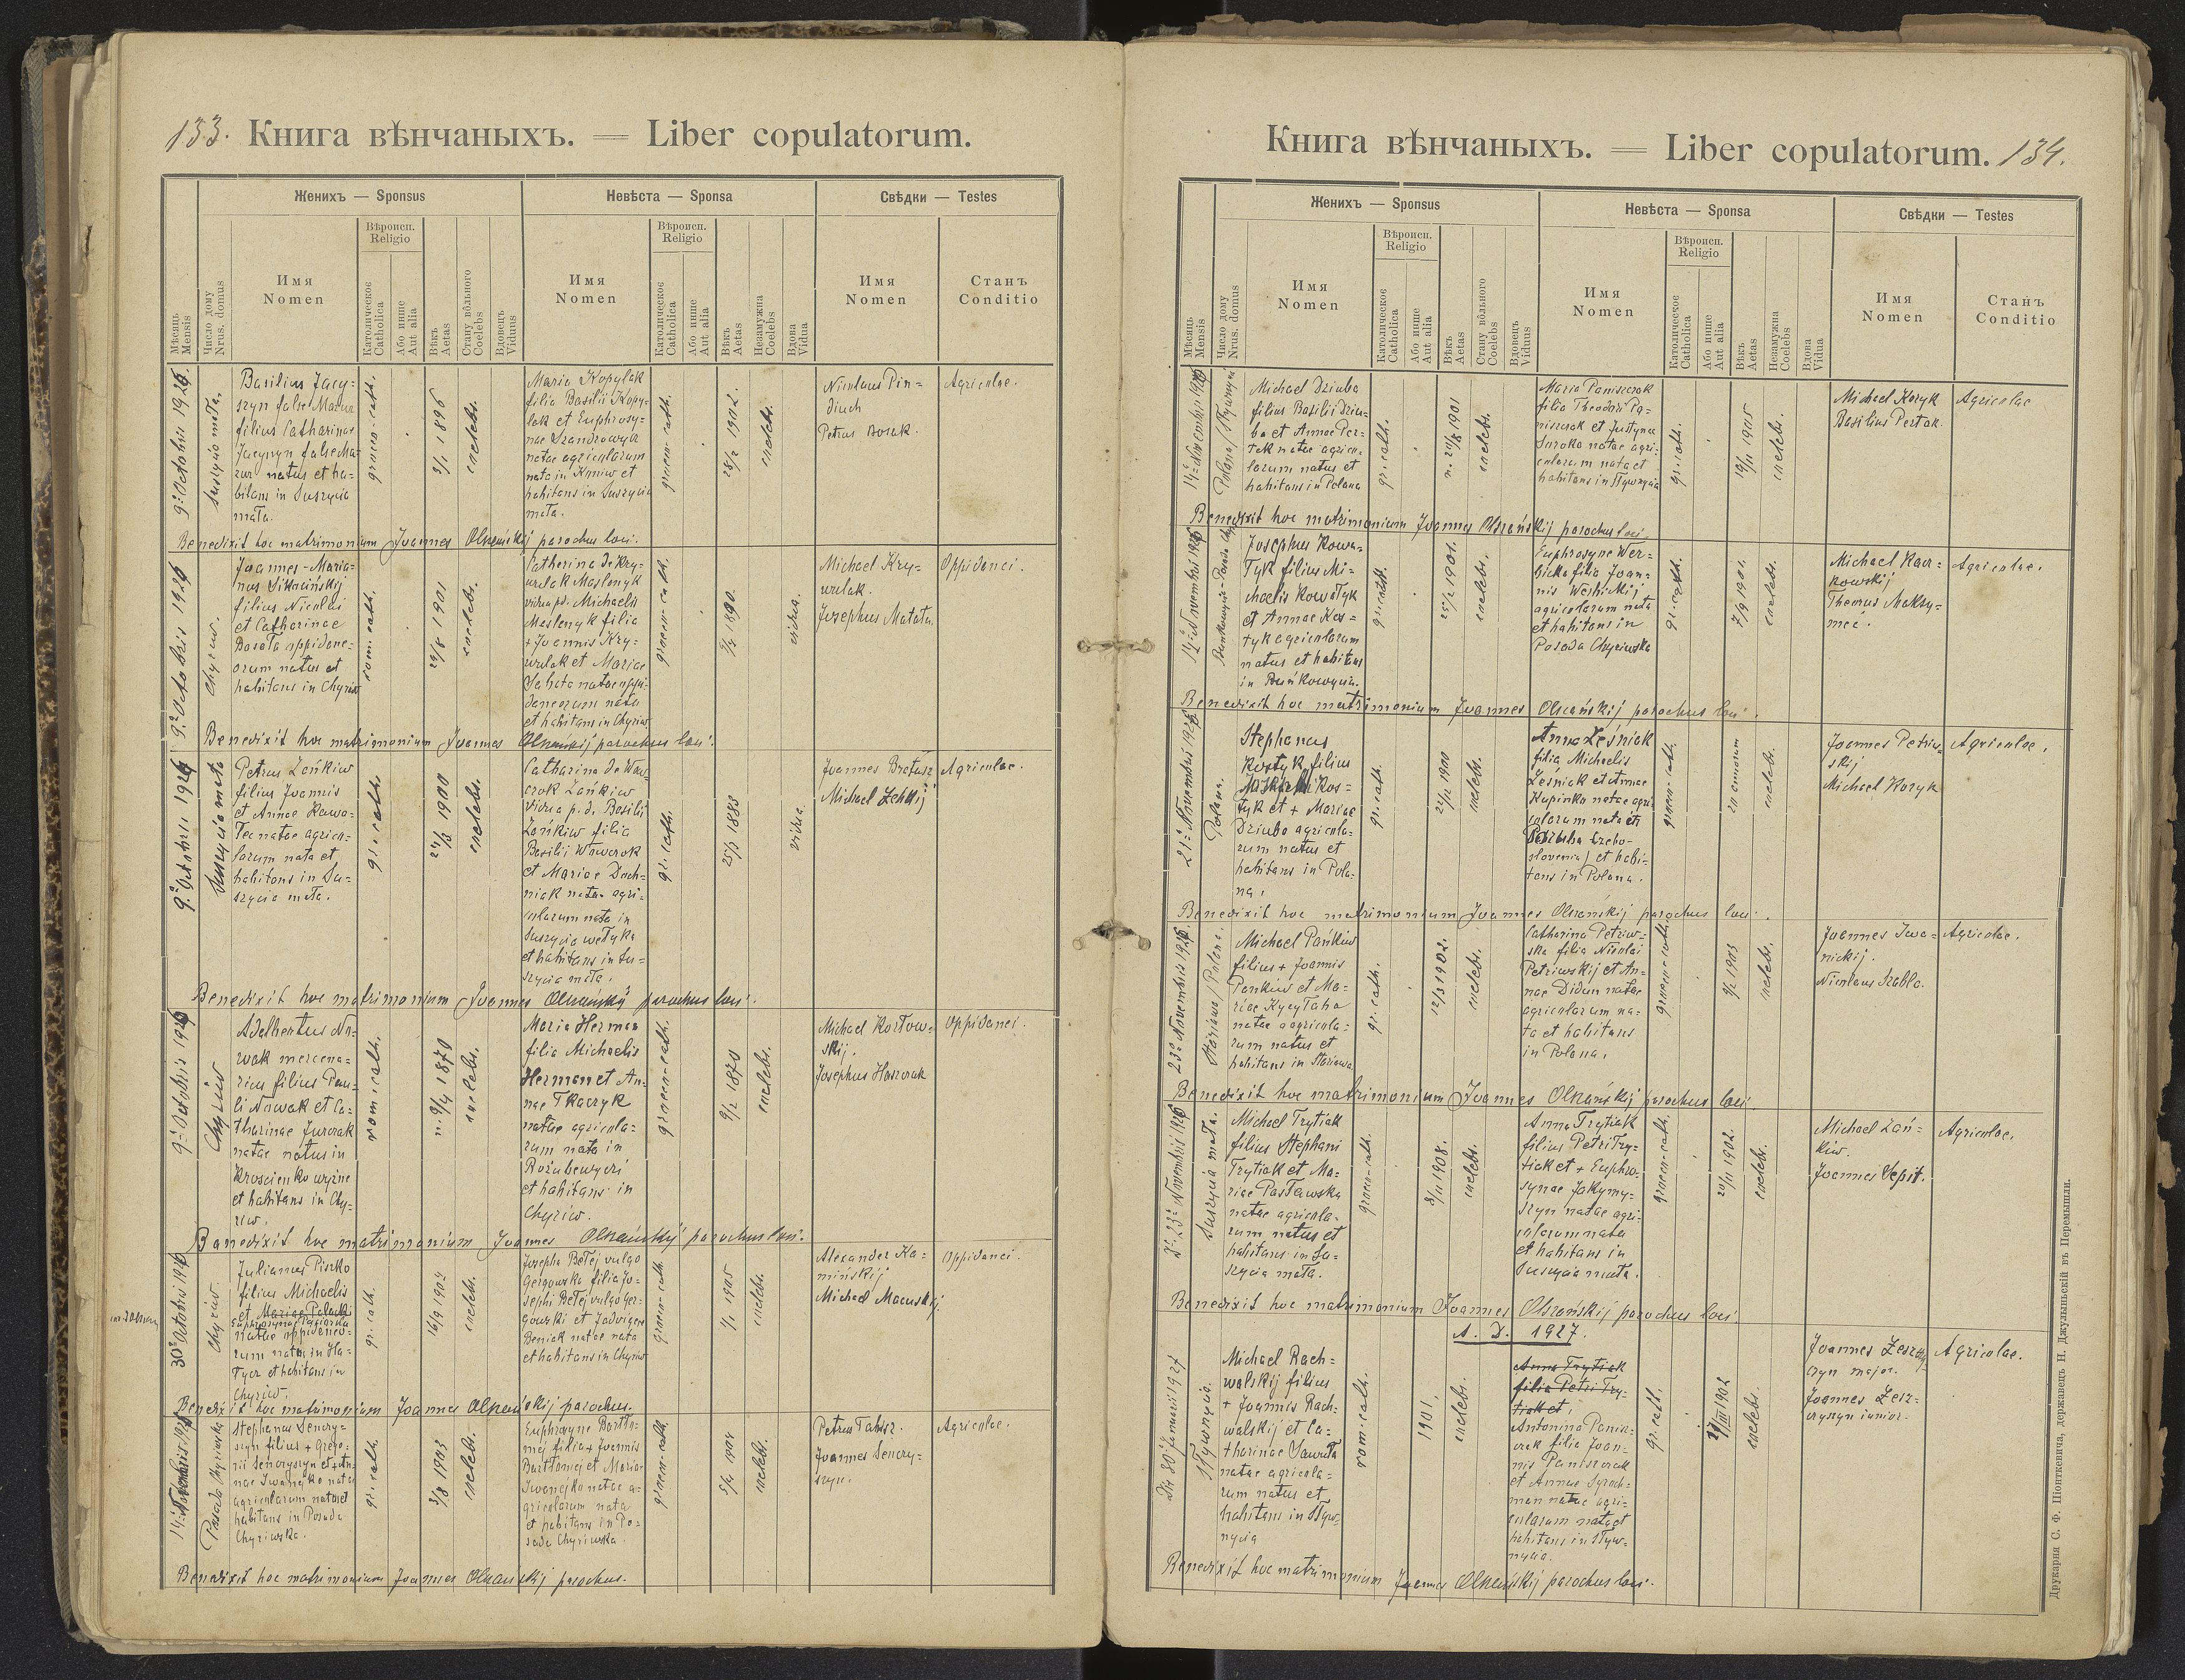 133. Книга вѣнчаныхъ. = Liber copulatorum.
Женихъ — Sponsus
Невѣста — Sponsa
Свѣдки — Testes
Мѣсяць
Mensis
Число дому
Nrus. domus
Имя
Nomen
Вѣроисп.
Religio
Католическое
Catholica
Або инше
Aut alia
Вѣкъ
Aetas
Стану вôльного
Coelebs
Вдовець
Viduus
Имя
Nomen
Вѣроисп.
Religio
Католическое
Catholica
Або инше
Aut alia
Вѣкъ
Aetas
Незамужна
Coelebs
Вдова
Vidua
Имя
Nomen
Станъ
Conditio
9º Octobris 1926.
Suszycia mała.
Basilius Jacy=
szyn false Mazur
filius Catharinae
Jacyszyn false Ma=
zur natus et ha=
bitans in Suszycia
mała.
graeco-cath.
3/1 1896
coelebs.
Maria Kopylak
filia Basilii Kopy=
lak et Euphrosy=
nae Szandrowycz
natae agricolarum
nata in Koniow et
habitans in Suszycia
mała.
graeco-cath.
28/2 1902.
coelebs.
Nicolaus Pin=
diuch
Petrus
Agricolae.
Benedixit hoc matrimonium Joannes Olszański parochus loci.
9º Octobris 1926
Chyriw.
Joannes-Maria=
nus
filius Nicolai
et Catharinae
oppidane=
orum natus et
habitans in Chyriw
rom. cath.
29/8 1901
coelebs.
Catherina de Kry=
wulak Maslenyk
vidua p.d. Michaelis
Maslenyk filia
+ Joannis Kry=
wulak et Mariae
natae oppi=
daneorum nata
et habitans in Chyriw
graeco-cath.
1890.
vidua.
Michael Kry=
wulak.
Josephus
Oppidanei.
Benedixit hoc matrimonium Joannes Olszańskij parochus loci.
9º Octobris 1926
Suszycia mała
Petrus Łańkiw
filius Joannis
et Annae Kawa=
lec natae agrico=
larum nata et
habitans in Su=
szycia mała.
gr. cath.
1900
coelebs.
Catharina de Waw=
czok Łańkiw
vidua p. d. Basilii
Łańkiw filia
Basilij Wawczok
et Mariae Doch=
niak natae agri=
colarum nata in
Suszycia wełyka
et habitans in Su=
szycia mała.
gr. cath.
25/3 1883
vidua
Joannes
Michael
Agricolae.
Benedixit hoc matrimonium Joannes Olszańskij parochus loci.
9º Octobris 1926
Chyriw
Adelbertus No=
wak mercena=
rius filius Pau=
li Nowak et Ca=
tharinae Jurczak
natae natus in
Kroscienko wyżne
et habitans in Chy=
riw.
rom. cath.
n. 9/4 1870
coelebs.
Maria Herman
filia Michaelis
Herman et An=
nae Tkaczyk
natae agricola=
rum nata in
et habitans in
Chyriw.
graeco-cath.
9/2 1870
coelebs.
Michael Kozłow=
skij.
Josephus
Oppidanei.
Benedixit hoc matrimonium Joannes Olszańskij parochus loci.
30º Octobris 1926
Chyriw.
Julianus Piszko
filius Michaelis
et Mariae
Euphrosynae
natae oppidaneo=
rum natus in
et habitans in
Chyriw.
gr. cath.
16/9 1904
coelebs.
Josepha Betej vulgo
Gergowska filia Jo=
sephi Betej vulgo Ger=
gowski et Jadvigae
Beniak natae nata
et habitans in Chyriw
graeco-cath.
1/1 1905
coelebs.
Alexander Ka=
mińskij
Michael
Oppidanei.
Benedixit hoc matrimonium Joannes Olszańskij parochus.
14º Novembris 1926
Posada Chyriwska
Stephanus Senczy=
szyn filius + Grego=
rii Senczyszyn et An=
nae Iwanejko natae
agricolarum natus et
habitans in Posada
Chyriwska.
gr. cath.
3/8 1903
coelebs.
Euphrosyne Bartło=
mej filia + Joannis
Bartłomej et Mariae
Iwanejko natae a=
gricolarum nata
et habitans in Po=
sada Chyriwska.
graeco-cath.
coelebs.
Petrus
Joannes Senczy=
szyn.
Agricolae.
Benedixit hoc matrimonium Joannes Olszańskij parochus.
Книга вѣнчаныхъ. = Liber copulatorum. 134.
Женихъ — Sponsus
Невѣста — Sponsa
Свѣдки — Testes
Мѣсяць
Mensis
Число дому
Nrus. domus
Имя
Nomen
Вѣроисп.
Religio
Католическое
Catholica
Або инше
Aut alia
Вѣкъ
Aetas
Стану вôльного
Coelebs
Вдовець
Viduus
Имя
Nomen
Вѣроисп.
Religio
Католическое
Catholica
Або инше
Aut alia
Вѣкъ
Aetas
Незамужна
Coelebs
Вдова
Vidua
Имя
Nomen
Станъ
Conditio
14º Novembris 1926
Polana /
Michael Dziuba
filius Basilii Dziu=
ba et Annae Per=
tak natae agrico=
larum natus et
habitans in Polana
gr. cath.
1901
coelebs.
Maria Paniszczak
filia Theodori Pa=
niszczak et Justynae
Soroka natae agri=
colarum nata et
habitans in
gr. cath.
19/11 1905
coelebs.
Michael Koryk
Basilius Pertak.
Agricolae
Benedixit hoc matrimonium Joannes Olszańskij parochus loci.
14º Novembris 1926
Josephus Kowa=
łyk filius Mi=
chaelis Kowałyk
et Annae Kos=
tyk agricolarum
natus et habitans
in Buńkowycia.
gr. cath.
25/2 1901.
coelebs.
Euphrosyne Wer=
bicka filia Joan=
nis Werbickij
agricolarum nata
et habitans in
Posada Chyriwska
gr. cath.
7/9 1901.
coelebs.
Michael Kacz=
kowskij
Theodorus Maksy=
mec.
Agricolae.
Benedixit hoc matrimonium Joannes Olszańskij parochus loci.
21º Novembris 1926
Polana.
Stephanus
Kostyk filius
Kos=
tyk et + Mariae
Dziuba agricola=
rum natus et
habitans in Pola=
na.
gr. cath.
1900
coelebs.
Anna Leśniak
filia Michaelis
Leśniak et Annae
Kupinka natae agri=
colarum nata in
Czecho-
slovenia) et habi=
tans in Polana.
graeco-cath.
coelebs.
Joannes Petriw=
skij
Michael Koryk
Agricolae.
Benedixit hoc matrimonium Joannes Olszańskij parochus loci.
23º Novembris 1926
Stariawa / Polana.
Michael Pańkiw
filius + Joannis
Pańkiw et Ma=
riae
natae agricola=
rum natus et
habitans in Stariawa
gr. cath.
12/3 1902.
coelebs.
Catharina Petriw=
ska filia Nicolai
Petriwskij et An=
nae Didun natae
agricolarum na=
ta et habitans
in Polana.
graeco-cath.
1903
coelebs.
Joannes Iwa=
nickij.
Nicolaus Szabla.
Agricolae.
Benedixit hoc matrimonium Joannes Olszańskij parochus loci.
D. 23º Novembris 1926
Suszycia mała.
Michael Trytiak
filius Stephani
Trytiak et Ma=
riae Pasławska
natae agricola=
rum natus et
habitans in Su=
szycia mała.
graeco-cath.
8/11 1908.
coelebs.
Anna Trytiak
filius Petri Try=
tiak et + Euphro=
synae Jakymy=
szyn natae agri=
colarum nata
et habitans in
Suszycia mała.
graeco-cath.
20/11 1902.
coelebs.
Michael Łań=
kiw.
Joannes Sepit.
Agricolae.
Benedixit hoc matrimonium Joannes Olszańskij parochus loci.
A. D. 1927.
Die 30º Januarii 1927
Michael Rach=
walskij filius
+ Joannis Rach=
walskij et Ca=
tharinae
natae agricola=
rum natus et
habitans in Slyw=
nycia
rom. cath.
1901.
coelebs.
Anna Trytiak
filia Petri Try=
tiak et
Antonina Panisz=
czak filia Joan=
nis Paniszczak
et Annae Syroch=
man natae agri=
colarum nata et
habitans in Slyw=
nycia.
gr. cath.
1902
coelebs.
Joannes
major.
Joannes
junior.
Agricolae.
Benedixit hoc matrimonium Joannes Olszańskij parochus loci.
Друкарня С. Ф. Піонткевича, державець Н. Джулыньскій въ Перемышли.